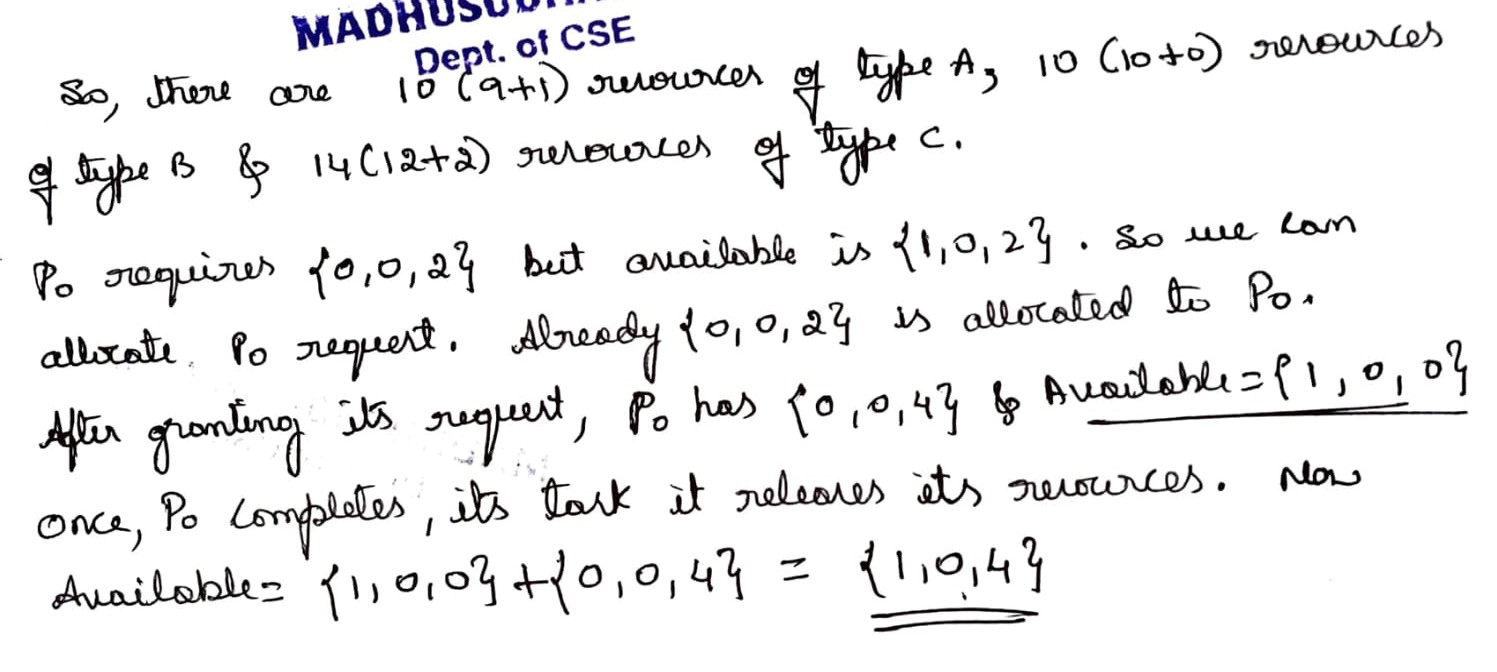 MADHUSUD
Dept. of CSE
So, there are 10 (9+1) resources of type A, 10 (10+0) resources
of type B & 14(12+2) resources of type C.
P0 requires {0,0,2} but available is {1,0,2}. So we can
allocate P0 request. Already {0,0,2} is allocated to P0.
After granting its request, P0 has {0,0,4} & Available={1,0,0}
once, P0 completes, its task it releases its resources. Now
Available= {1,0,0}+{0,0,4} = {1,0,4}